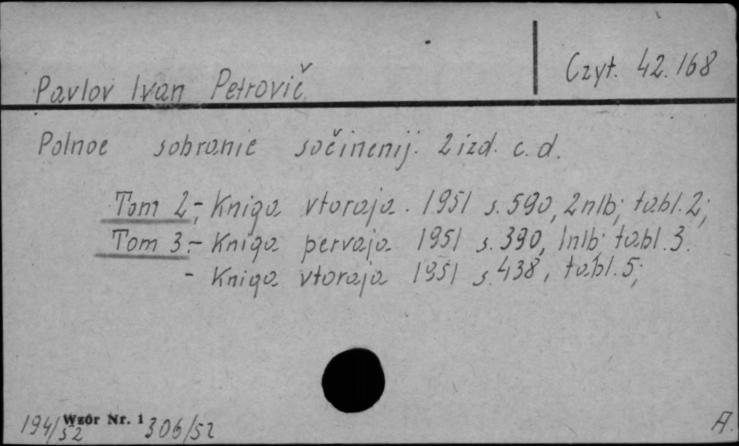 Czyt. 42.168
Pavlov Ivan Petrovič
Polnoe sobranie sočinenij. 2 izd. c.d.
Tom 2,- Kniga vtoraja. 1951 s. 590, 2nlb; tabl. 2;
Tom 3,- Kniga pervaja 1951 s. 390, 1nlb; tabl. 3.
- Kniga vtoraja 1951 s. 438, tabl. 5;
194/52 Wzór Nr. 1 306/52 A.